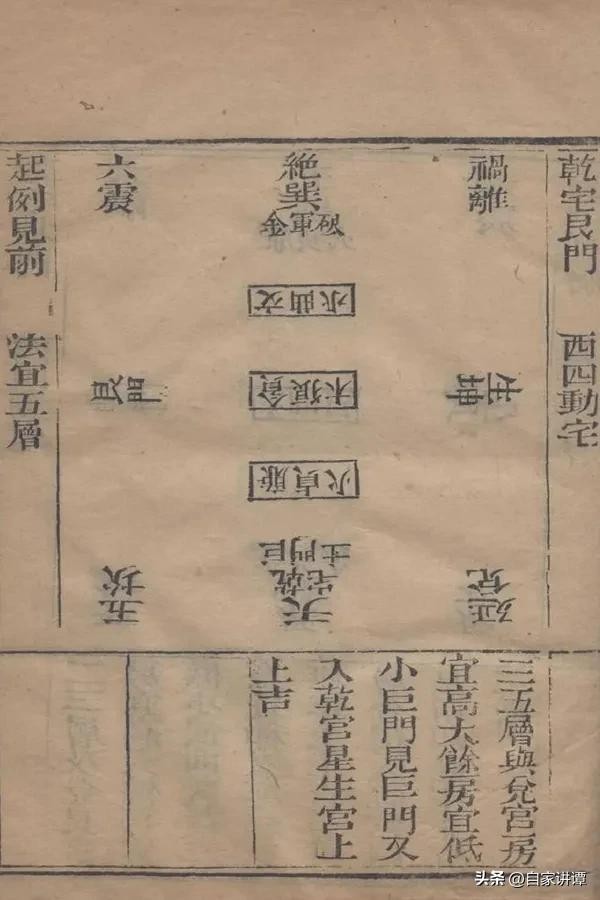 乾宅艮門 西四動宅
禍離
坤生
延兌
絕巽
破軍金
文曲水
貪狼木
廉貞火
巨門土
乾宅
天
六震
五坎
起例見前 法宜五層
三五層與兌宮房
宜高大餘房宜低
小巨門見巨門又
入乾宮星生宮上
上吉
头条 @自家讲谭